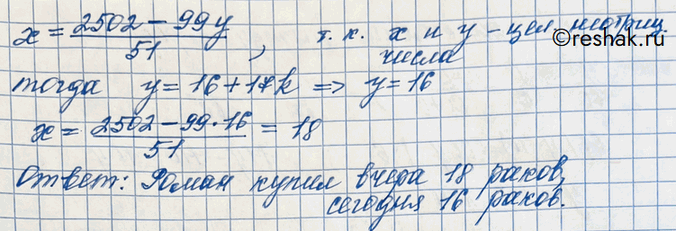 x = (2502 - 99y)/51, т.к. x и y - цел. неотриц.
числа
©reshak.ru
тогда y = 16 + 17k => y = 16
x = (2502 - 99·16)/51 = 18
Ответ: Роман купил вчера 18 раков,
сегодня 16 раков.